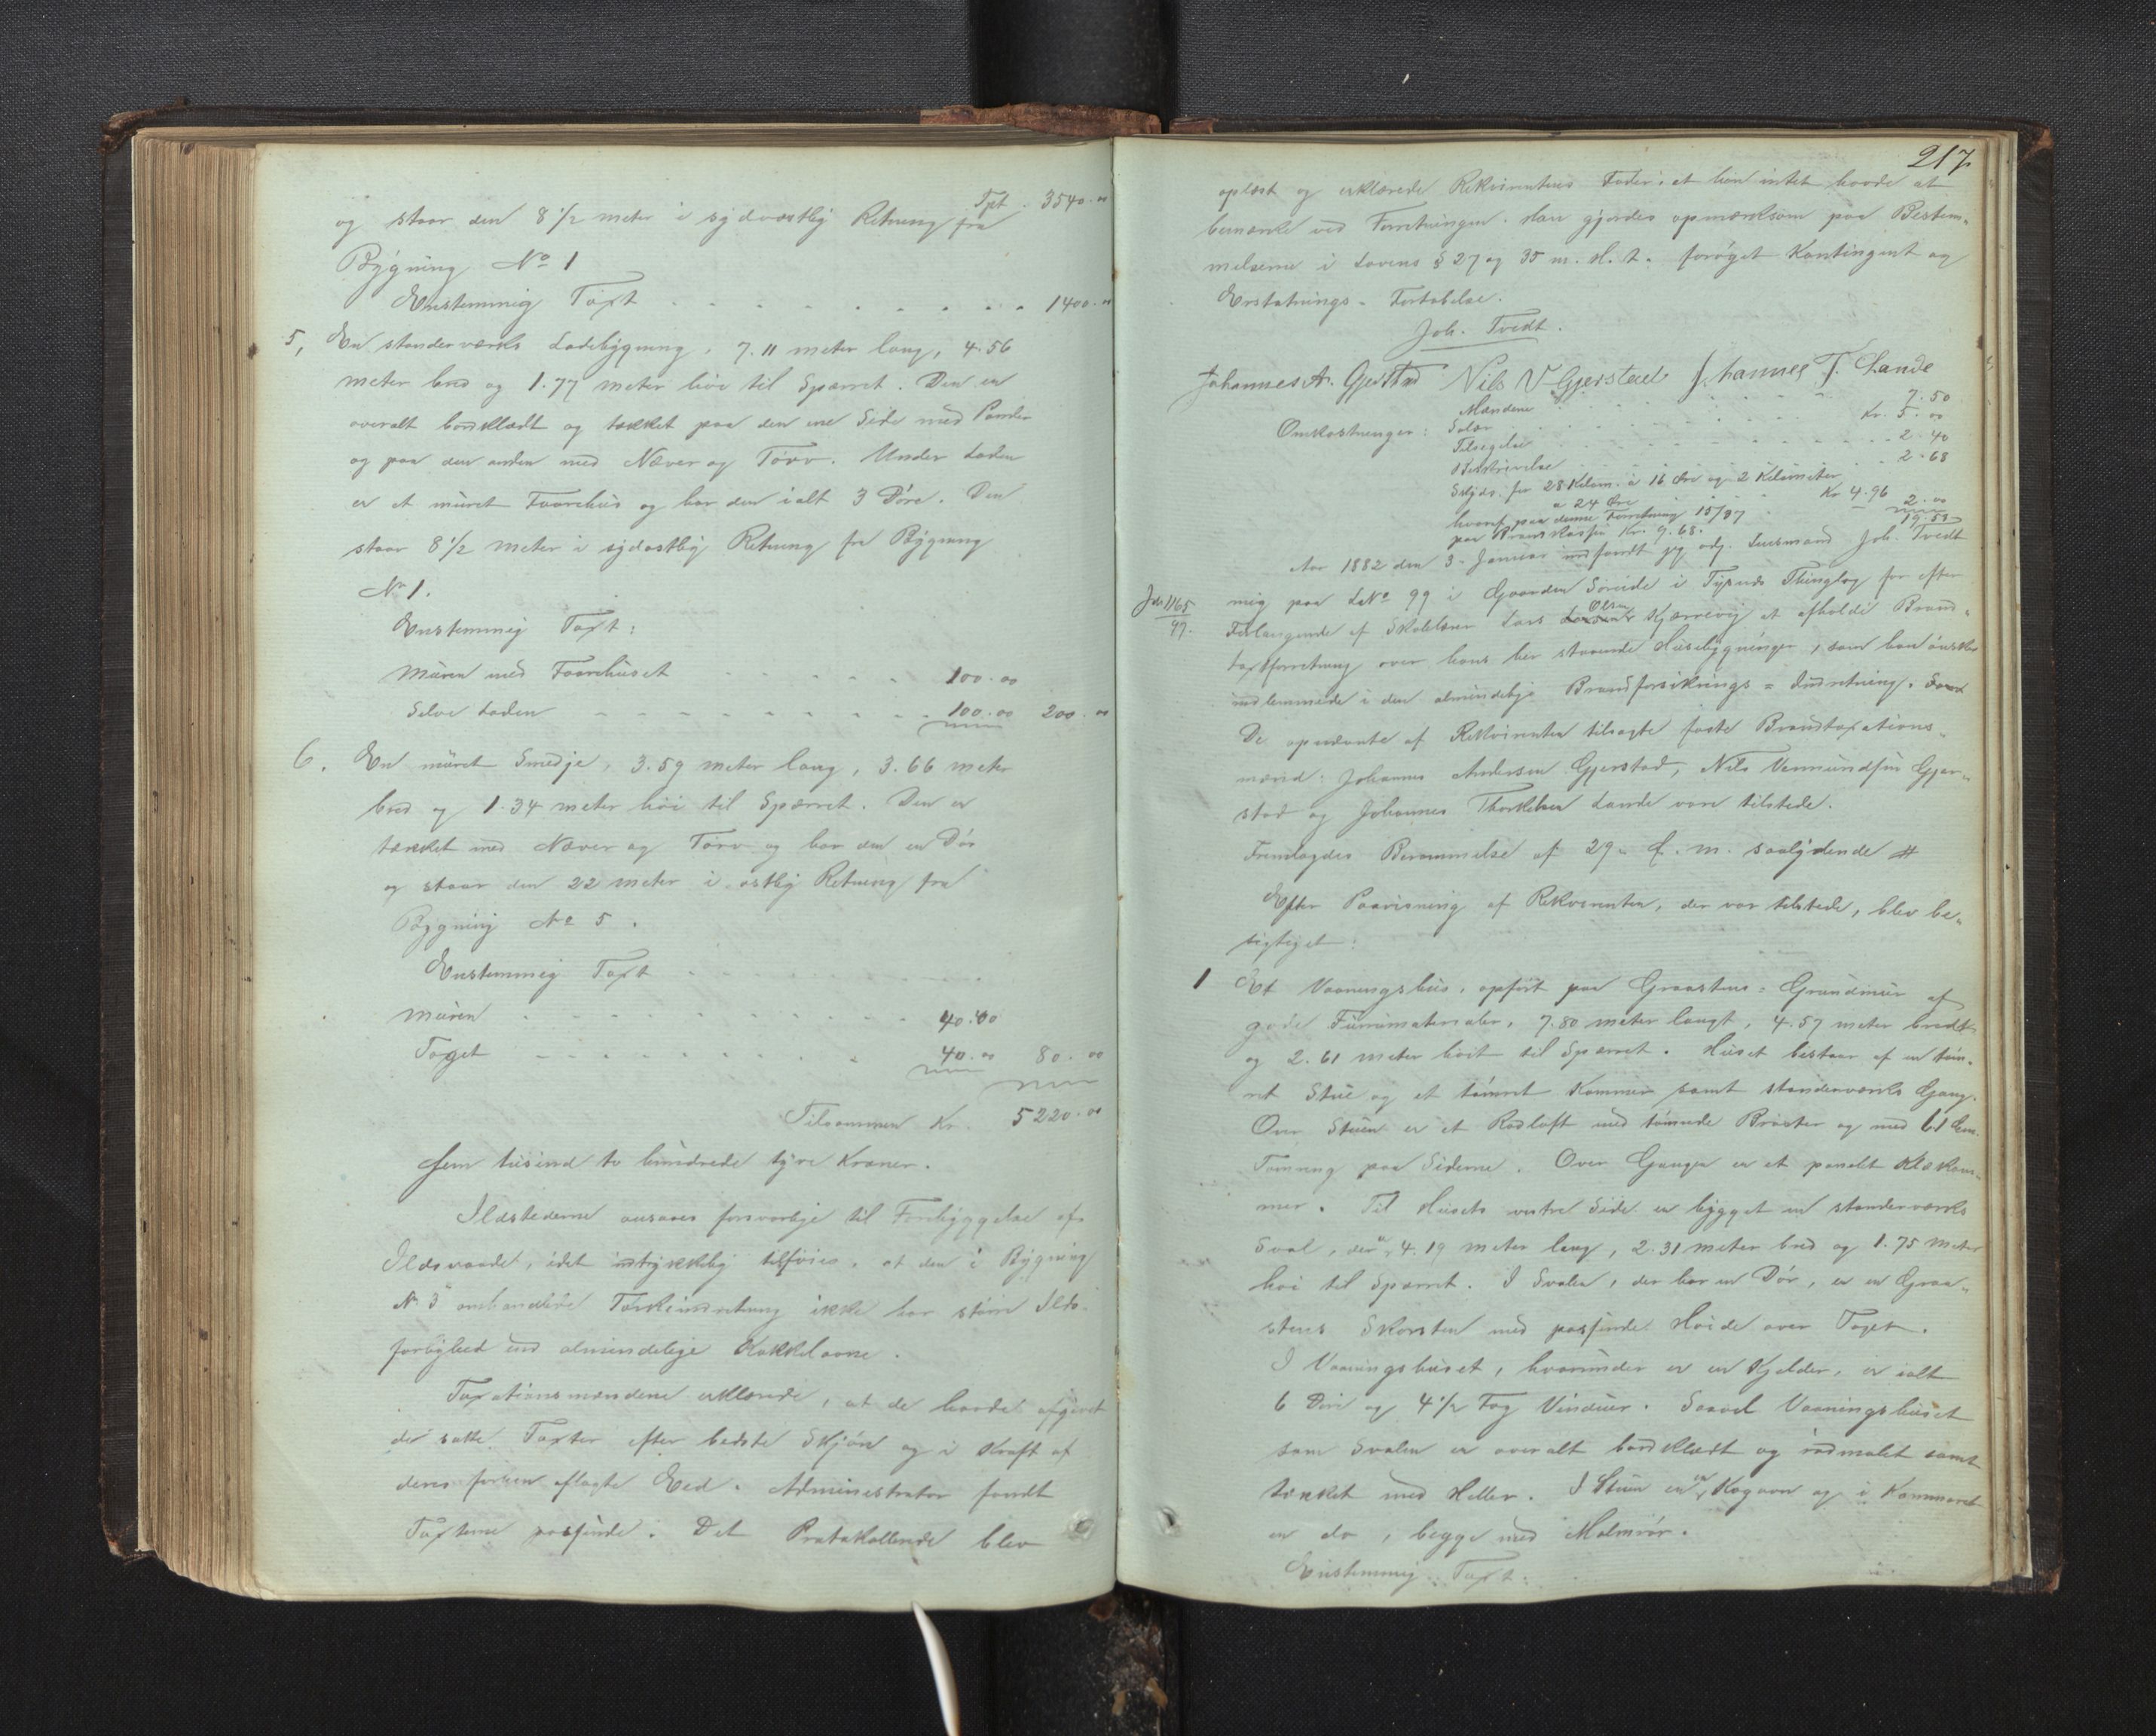 Tpt. 3540.00
og staar den 8 1/2 meter i sydvestlig Retning fra
Bygning No 1
Enstemmig Taxt . . . . . . . . . 1400.00
5, En standerværks Ladebygning, 7.11 meter lang, 4.56
meter bred og 1.77 meter høi til Spærret. Den er
overalt bordklædt og tækket paa den ene Side med Pander
og paa den anden med Næver og Törv. Under Laden
er et muret Faarehus og har den ialt 3 Döre. Den
staar 8 1/2 meter i sydostlig Retning fra Bygning
No 1.
Enstemmig Taxt:
Muren med Faarehuset . . . . . . 100.00
Selve Laden . . . . . . . . . 100.00 200.00
6. En muret Smedje, 3.59 meter lang, 3.66 meter
bred og 1.34 meter høi til Spærret. Den er
tækket med Næver og Törv og har den en Dör
og staar den 22 meter i ostlig Retning fra
Bygning No 5.
Enstemmig Taxt . . . . . .
Muren . . . . . . . . . 40.00
Taget . . . . . . . . . 40.00 80.00
Tilsammen Kr. 5220.00
Fem tusind to hundrede tyve Kroner.
Ildstederne ansaaes forsvarlige til Forebyggelse af
Ildsvaade, idet udtrykkelig tilföies, at den i Bygning
No 3 omhandlede Törkeindretning ikke har större Ilds-
farlighed end almindelige Kakkelovne.
Taxationsmændene erklærede, at de havde afgivet
de satte Taxter efter bedste Skjön og i Kraft af
deres forhen aflagte Eed. Administrator fandt
Taxterne passende. Det Protokollerede blev
217
oplæst og erklærede Rekvirentens Fader, at han intet havde at
bemærke ved Forretningen. Han gjordes opmærksom paa Bestem-
melserne i Lovens § 27 og 35 m. H. t. forøget Kontingent og
Erstatnings-Fortabelse.
Joh. Tvedt.
Johannes A. Gjerstad Nils V Gjerstad Johannes T. Lande
Omkostninger: Mændene . . . . . . 7.50
Salær . . . . . . Kr. 5.00
Tilsigelse . . . . . . 2.40
Beskrivelse . . . . . . 2.68
Skyds for 28 Kilom. à 16 Øre og 2 Kilometer
a 24 Øre . . . Kr 4.96
hvoraf paa denne Forretning 15/37 2.00
paa Brandkassen Kr. 9.68. 19.58
Aar 1882 den 3. Januar indfandt jeg adj. Lensmand Joh. Tvedt
Jds 1165/97. mig paa LNo 99 i Gaarden Søreide i Tysnes Thinglag for efter
Forlangende af Skolelærer Lars Olsen Kjærrevig at afholde Brand-
taxtforretning over hans her staaende Husebygninger, som han ønsker
indlemmede i den almindelige Brandforsikrings-Indretning.
De opnævnte af Rekvirenten tilsagte faste Brandtaxations-
mænd: Johannes Andersen Gjerstad, Nils Vermundsen Gjer-
stad og Johannes Thorkelsen Lande vare tilstede.
Fremlagdes Berammelse af 29. f. m. saalydende #
Efter Paavisning af Rekvirenten, der var tilstede, blev be-
sigtiget:
1 Et Vaaningshus, opført paa Graastens-Grundmur af
gode Furumaterialer, 7.80 meter langt, 4.57 meter bredt
og 2.61 meter høit til Spærret. Huset bestaar af en töm-
ret Stue og et tömret Kammer samt standerværks Gang.
Over Stuen er et Rodloft med tömrede Bröster og med 61 Cm.
Tömring paa Siderne. Over Gangen er et panelet Klækam-
mer. Til Husets vestre Side er bygget en standerværks
Sval, der er 4.19 meter lang, 2.31 meter bred og 1.75 meter
høi til Spærret. I Svalen, der har en Dör, er en Graa-
stens Skorsten med passende Høide over Taget.
I Vaaningshuset, hvorunder er en Kjelder, er ialt
6 Döre og 4 1/2 Fag Vinduer. Saavel Vaaningshuset
som Svalen er overalt bordklædt og rødmalet samt
tækket med Heller. I Stuen er en Kogovn og i Kammeret
en do, begge med Malmrør.
Enstemmig Taxt: